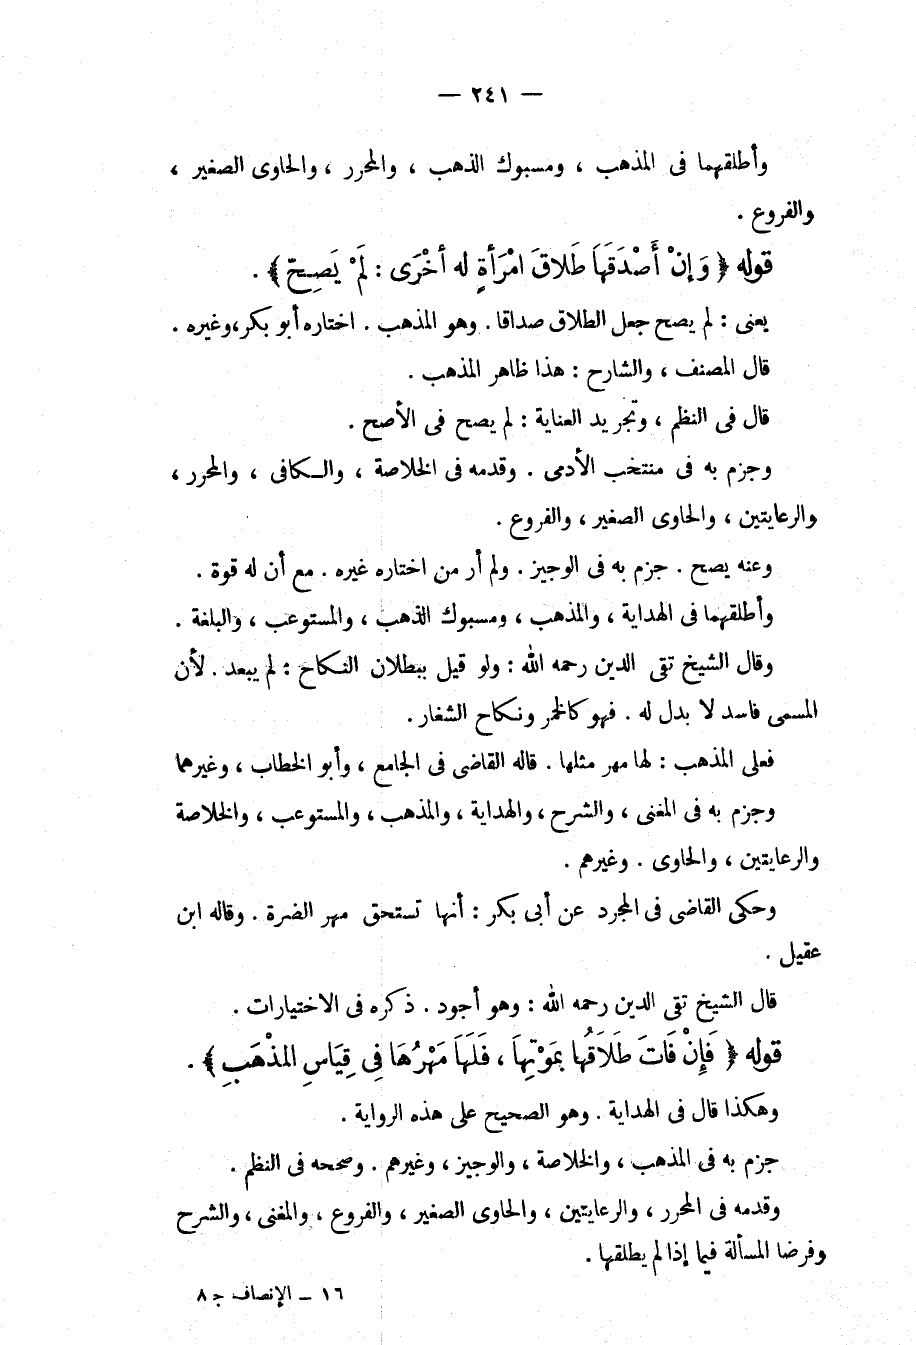 — ٢٤١ —
وأطلقهما فى المذهب ، ومسبوك الذهب ، والمحرر ، والحاوى الصغير ،
والفروع .
قوله ﴿ وَإِنْ أَصْدَقَهَا طَلَاقَ امْرَأَةٍ له أخْرَى : لَمْ يَصِحّ ﴾ .
يعنى : لم يصح جعل الطلاق صداقا . وهو المذهب . اختاره أبو بكر، وغيره .
قال المصنف ، والشارح : هذا ظاهر المذهب .
قال فى النظم ، وتجريد العناية : لم يصح فى الأصح .
وجزم به فى منتخب الأدمى . وقدمه فى الخلاصة ، والـكافى ، والمحرر ،
والرعايتين ، والحاوى الصغير ، والفروع .
وعنه يصح . جزم به فى الوجيز . ولم أر من اختاره غيره . مع أن له قوة .
وأطلقهما فى الهداية ، والمذهب ، ومسبوك الذهب ، والمستوعب ، والبلغة .
وقال الشيخ تقى الدين رحمه الله : ولو قيل ببطلان النـكاح : لم يبعد . لأن
المسمى فاسد لا بدل له . فهو كالخمر ونكاح الشغار .
فعلى المذهب : لها مهر مثلها . قاله القاضى فى الجامع ، وأبو الخطاب ، وغيرهما
وجزم به فى المغنى ، والشرح ، والهداية ، والمذهب ، والمستوعب ، والخلاصة
والرعايتين ، والحاوى . وغيرهم .
وحكى القاضى فى المجرد عن أبى بكر : أنها تستحق مهر الضرة . وقاله ابن
عقيل .
قال الشيخ تقى الدين رحمه الله : وهو أجود . ذكره فى الاختيارات .
قوله ﴿ فَإِنْ فَاتَ طَلَاقُها بمَوْتِهَا ، فَلَهَا مَهْرُهَا فِى قِيَاسِ المذْهَبِ ﴾ .
وهكذا قال فى الهداية . وهو الصحيح على هذه الرواية .
جزم به فى المذهب ، والخلاصة ، والوجيز ، وغيرهم . وصححه فى النظم .
وقدمه فى المحرر ، والرعايتين ، والحاوى الصغير ، والفروع ، والمغنى ، والشرح
وفرضا المسألة فيما إذا لم يطلقها .
١٦ ــ الإنصاف جـ ٨